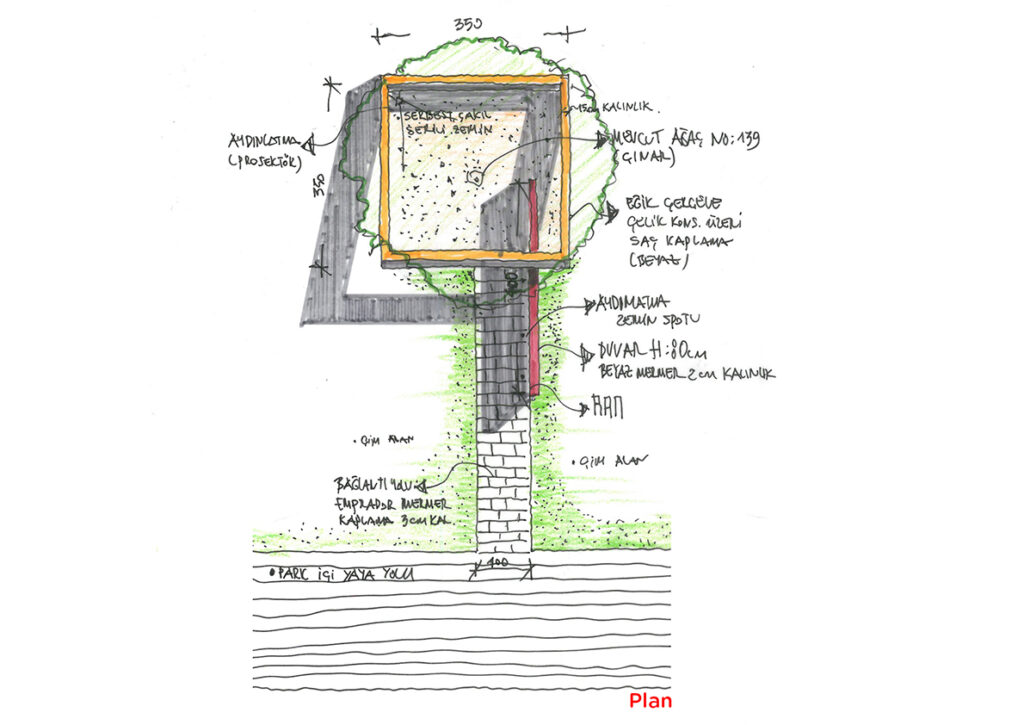 350
15cm KALINLIK.
SERBEST ÇAKIL
SERİLİ ZEMİN
AYDINLATMA
(PROJEKTÖR)
350
MEVCUT AĞAÇ NO:139
(ÇINAR)
EĞİK ÇERÇEVE
ÇELİK KONS. ÜZERİ
SAÇ KAPLAMA
(BEYAZ)
400
AYDINLATMA
ZEMİN SPOTU
DUVAR H:80cm
BEYAZ MERMER 2cm KALINLIK
• ÇİM ALAN
• ÇİM ALAN
BAĞLANTI YOLU
EMPRADOR MERMER
KAPLAMA 3cm KAL.
100
• PARK İÇİ YAYA YOLU
Plan